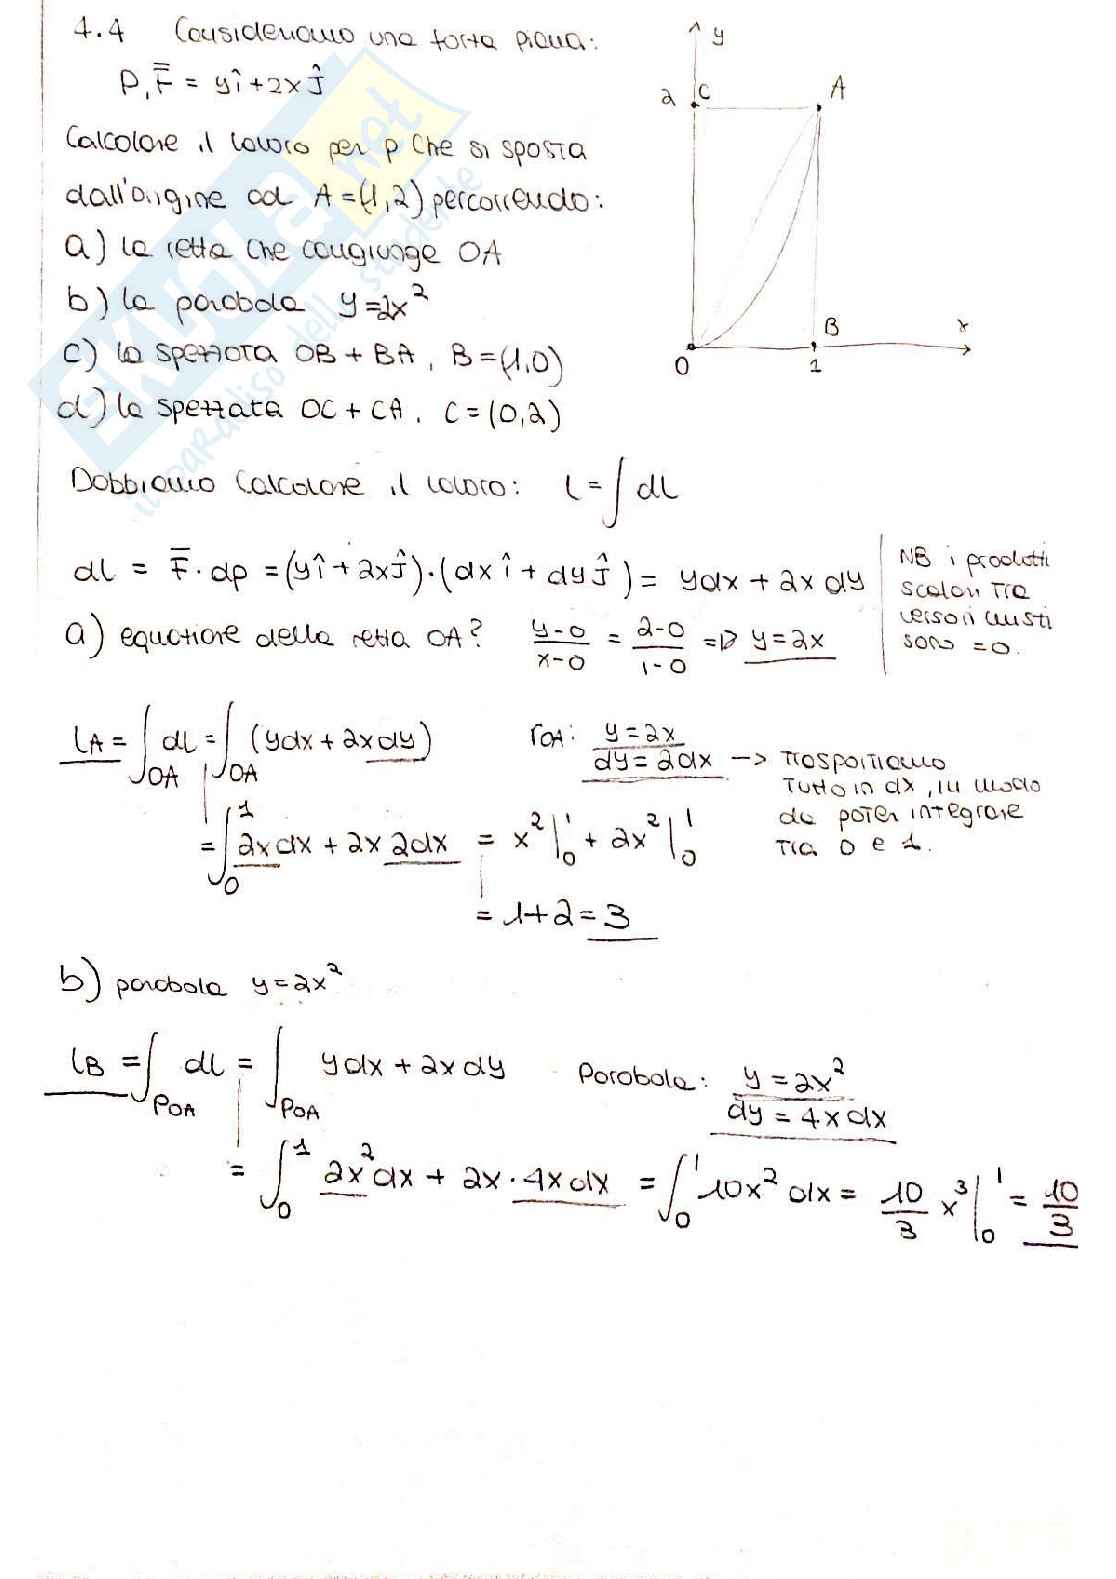 4.4 Consideriamo una forza piana:
P, F̅ = yî + 2xĵ
Calcolare il lavoro per p che si sposta
dall'origine ad A=(1,2) percorrendo:
a) la retta che congiunge OA
b) la parabola y=2x²
c) la spezzata OB + BA, B=(1,0)
d) la spezzata OC + CA, C=(0,2)
y
2 C A
B x
O 1
Dobbiamo calcolare il lavoro: L = ∫ dL
dL = F̅ · dp = (yî + 2xĵ)·(dx î + dy ĵ) = ydx + 2x dy
NB i prodotti
scalari tra
versori misti
sono = 0.
a) equazione della retta OA? (y-0)/(x-0) = (2-0)/(1-0) => y=2x
LA = ∫OA dL = ∫OA (ydx + 2xdy) rOA: y=2x
dy=2dx -> Trasportiamo
tutto in dx, in modo
da poter integrare
tra 0 e 1.
= ∫₀¹ 2xdx + 2x 2dx = x²|₀¹ + 2x²|₀¹
= 1+2 = 3
b) parabola y=2x²
LB = ∫POA dL = ∫POA ydx + 2x dy Parabola: y=2x²
dy = 4x dx
= ∫₀¹ 2x²dx + 2x · 4x dx = ∫₀¹ 10x² dx = 10/3 x³|₀¹ = 10/3
SKUOLA.net
il paradiso dello studente